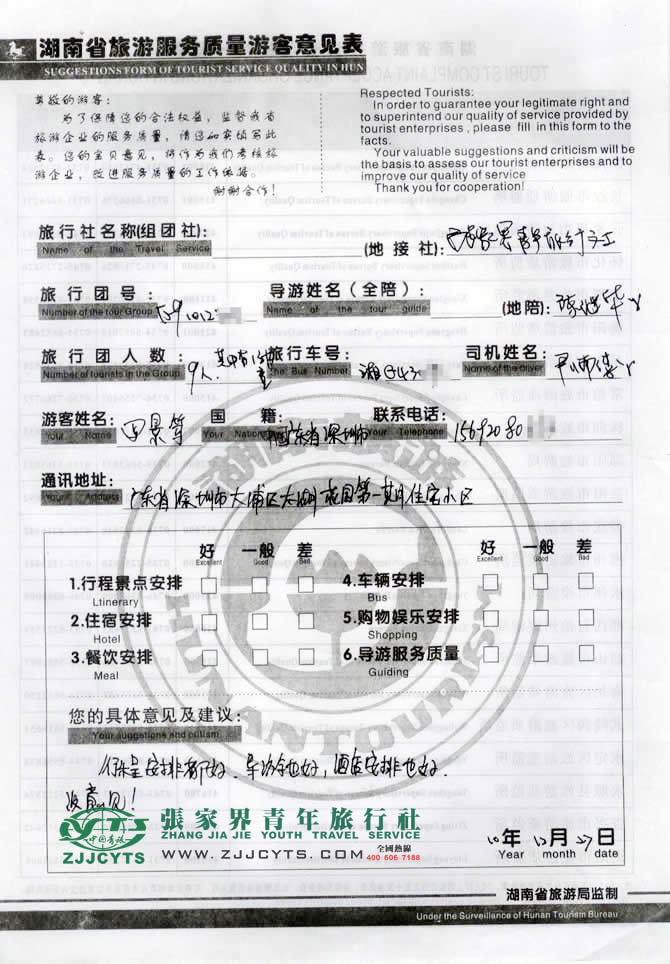 湖南省旅游服务质量游客意见表
SUGGESTIONS FORM OF TOURIST SERVICE QUALITY IN HUN
尊敬的游客:
为了保障您的合法权益,监督我省
旅游企业的服务质量,请您如实填写此
表。您的宝贝意见,将作为我们考核旅
游企业,改进服务质量的工作依据。
谢谢合作!
Respected Tourists:
In order to guarantee your legitimate right and
to superintend our quality of service provided by
tourist enterprises , please fill in this form to the
facts.
Your valuable suggestions and criticism will be
the basis to assess our tourist enterprises and to
improve our quality of service
Thank you for cooperation!
旅行社名称(组团社):
Name of the Travel Service
(地接社):
旅行团号:
Number of the tour Group
导游姓名(全陪):
Name of the tour guide
(地陪):
旅行团人数:
Number of tourists in the Group
9人.
旅行车号:
The Bus Number
司机姓名:
Name of the driver
游客姓名:
Your Name
国籍:
Your Nation
广东省深圳市
联系电话:
Your Telephone
15692080
通讯地址:
Your Address
广东省深圳市大浦区太湖花园第一期住宅小区
好 一般 差
Excellent Good Bad
好 一般 差
Excellent Good Bad
1.行程景点安排
Ltinerary
4.车辆安排
Bus
2.住宿安排
Hotel
5.购物娱乐安排
Shopping
3.餐饮安排
Meal
6.导游服务质量
Guiding
您的具体意见及建议:
Your suggestions and
行程安排都好、导游也好,酒店安排也好.
没意见!
CYTS
中国青旅
ZJJCYTS
張家界青年旅行社
ZHANG JIA JIE YOUTH TRAVEL SERVICE
WWW.ZJJCYTS.COM
全國熱線
400 606 7188
10年 10月 27日
Year month date
HUNAN TOURISM
湖南省旅游局监制
Under the Surveillance of Hunan Tourism Bureau